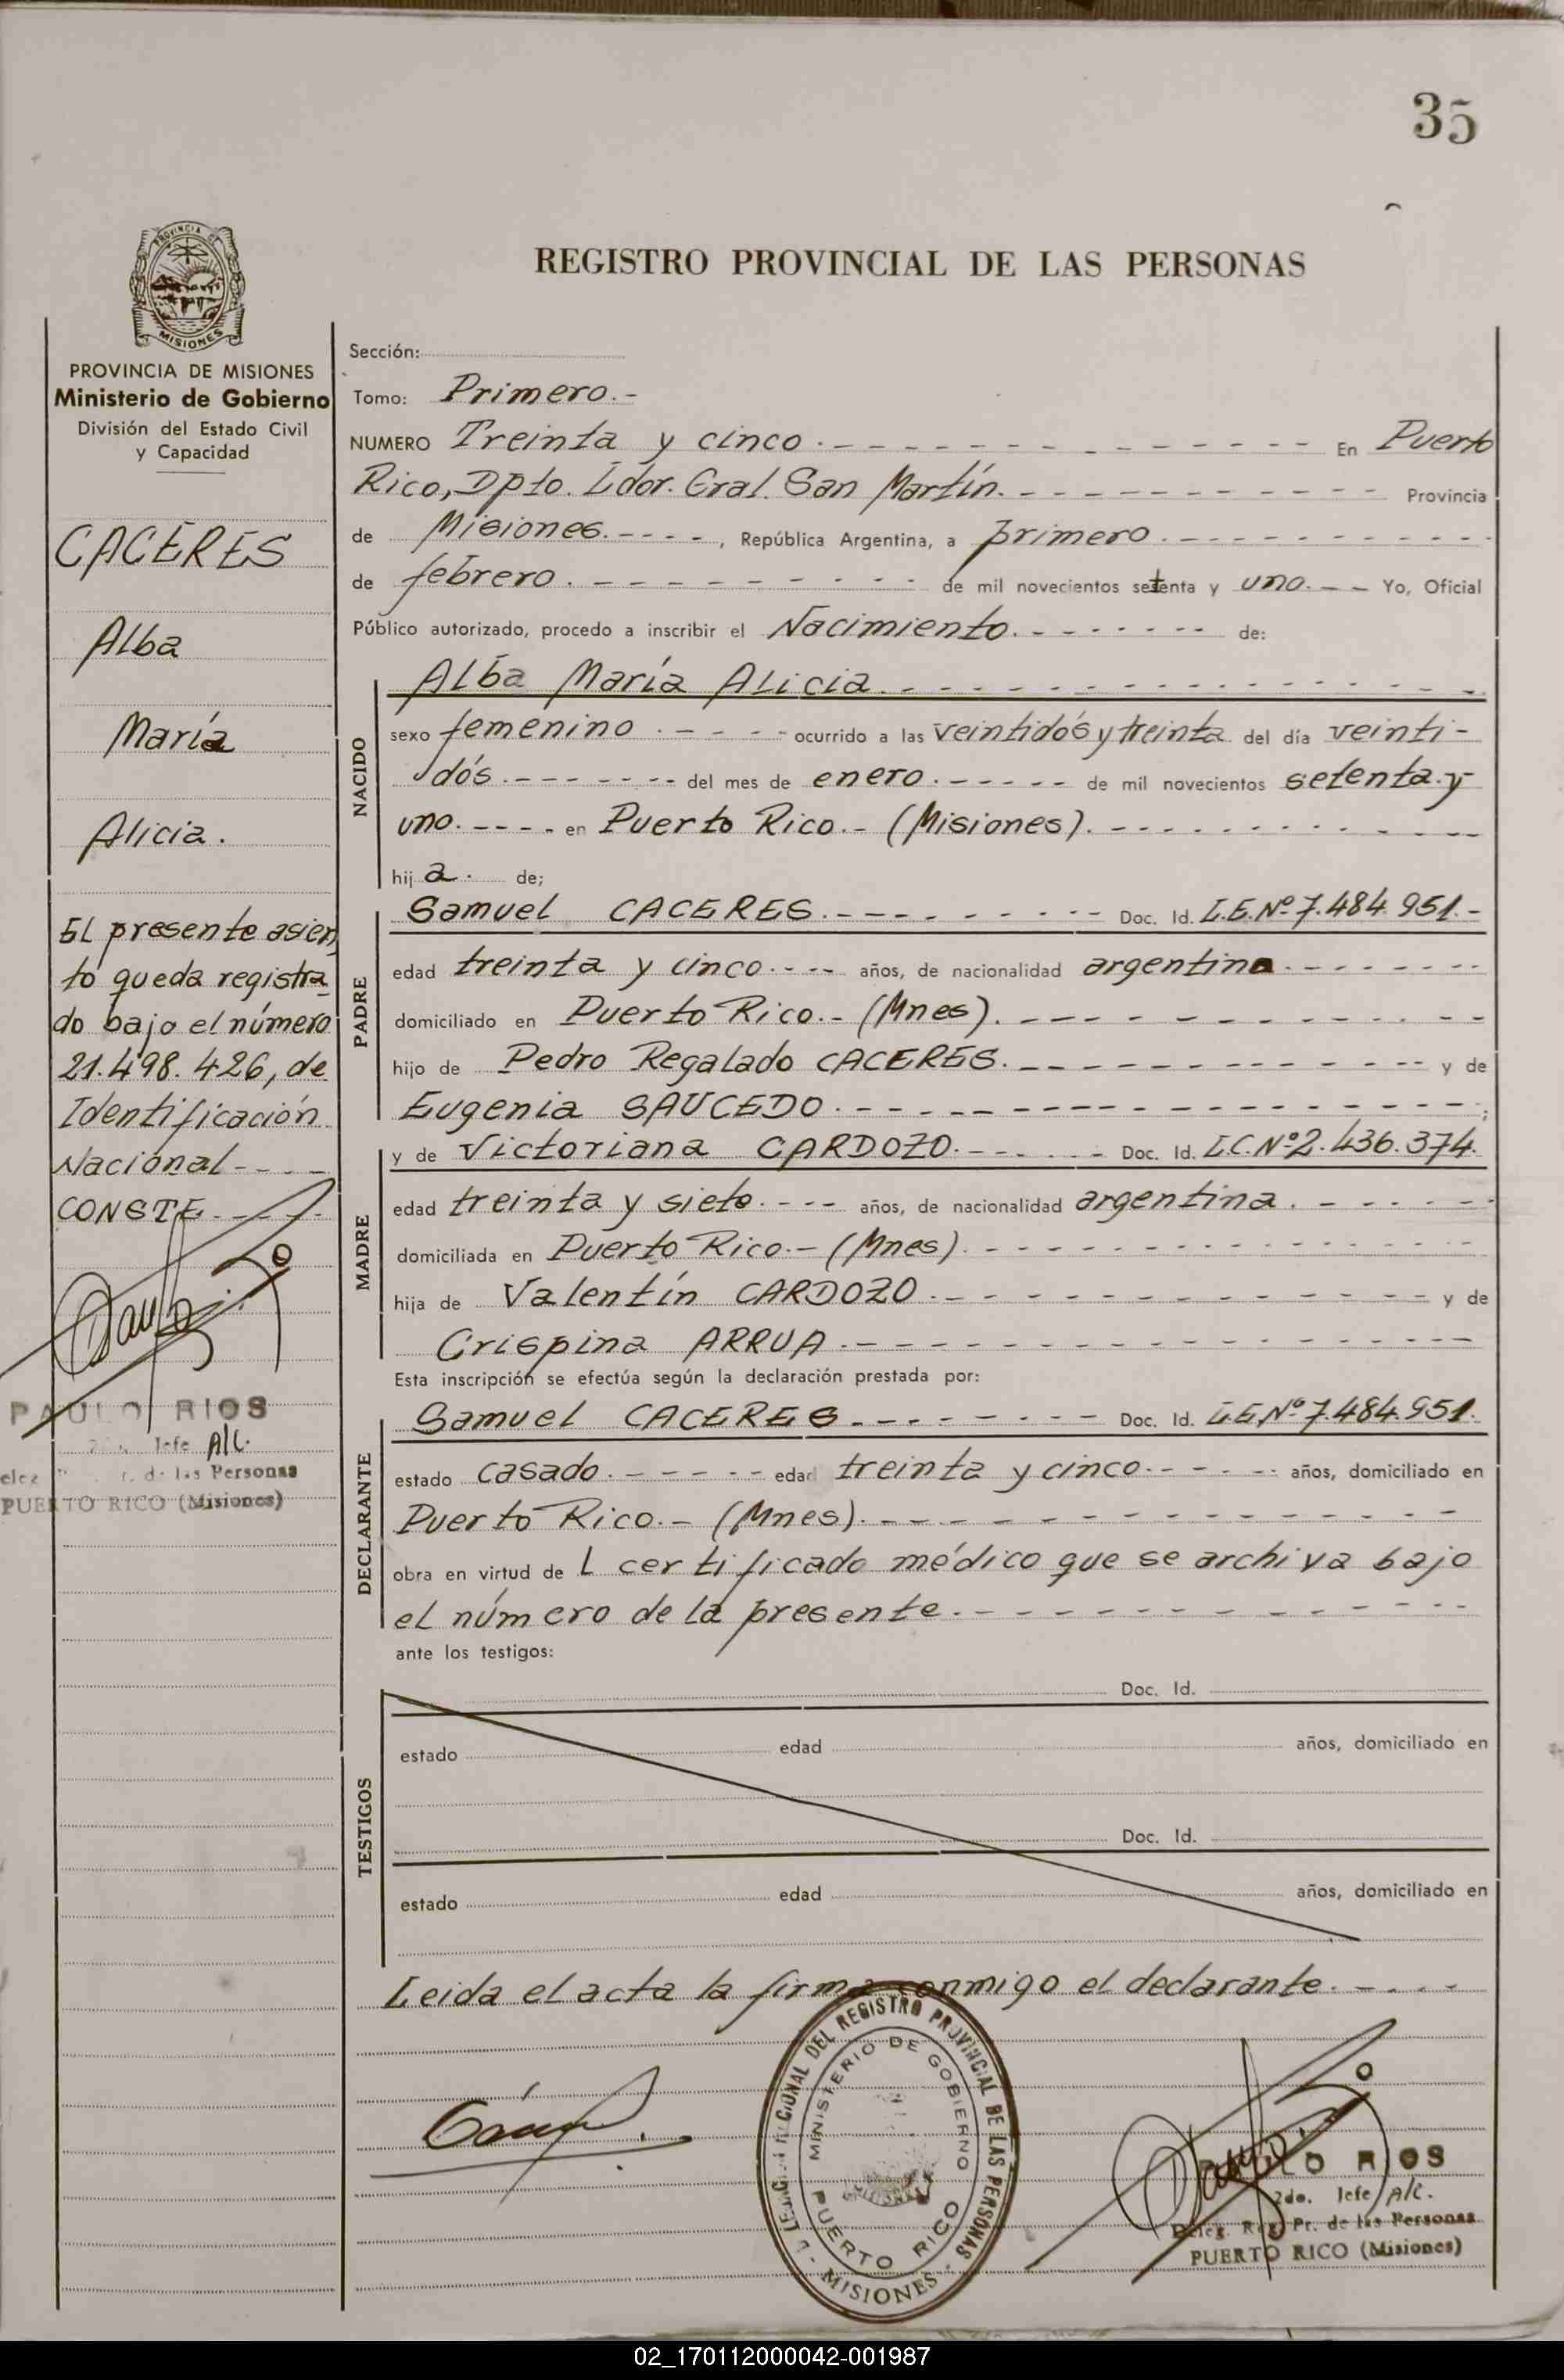 35
PROVINCIA DE
MISIONES
REGISTRO PROVINCIAL DE LAS PERSONAS
PROVINCIA DE MISIONES
Ministerio de Gobierno
División del Estado Civil
y Capacidad
CACERES
Alba
María
Alicia.
El presente asien
to queda registra
do bajo el número
21.498.426, de
Identificación
Nacional - - - -
CONSTE - - - -
PAULO RIOS
Jefe A/c.
de las Personas
PUERTO RICO (Misiones)
Sección:
Tomo: Primero.-
NUMERO Treinta y cinco. - - - - En Puerto
Rico, Dpto. Ldor. Gral. San Martín. - - - - Provincia
de Misiones. - - - -, República Argentina, a primero. - - - -
de febrero. - - - - de mil novecientos setenta y uno. - - Yo, Oficial
Público autorizado, procedo a inscribir el Nacimiento. - - - - de:
NACIDO
Alba María Alicia. - - - -
sexo femenino. - - - - ocurrido a las veintidós y treinta del día veinti-
dós. - - - - del mes de enero. - - - - de mil novecientos setenta y
uno. - - - - en Puerto Rico.- (Misiones). - - - -
hija. de;
PADRE
Samuel CACERES. - - - - Doc. Id. L.E.Nº 7.484.951.-
edad treinta y cinco. - - - - años, de nacionalidad argentina. - - - -
domiciliado en Puerto Rico.- (Mnes). - - - -
hijo de Pedro Regalado CACERES. - - - - y de
Eugenia SAUCEDO. - - - - ;
MADRE
y de Victoriana CARDOZO. - - - - Doc. Id. L.C.Nº 2.436.374.
edad treinta y siete. - - - - años, de nacionalidad argentina. - - - -
domiciliada en Puerto Rico.- (Mnes). - - - -
hija de Valentín CARDOZO. - - - - y de
Crispina ARRUA. - - - -
Esta inscripción se efectúa según la declaración prestada por:
DECLARANTE
Samuel CACERES. - - - - Doc. Id. L.E.Nº 7.484.951.
estado casado. - - - - edad treinta y cinco. - - - - años, domiciliado en
Puerto Rico.- (Mnes). - - - -
obra en virtud de l certificado médico que se archiva bajo
el número de la presente. - - - -
ante los testigos:
TESTIGOS
Doc. Id.
estado edad años, domiciliado en
Doc. Id.
estado edad años, domiciliado en
Leida el acta la firma conmigo el declarante. - - - -
DEL REGISTRO PROVINCIAL DE LAS PERSONAS
MINISTERIO DE GOBIERNO
PUERTO RICO
- MISIONES -
RIOS
2do. Jefe A/c.
Deleg. Reg. Pr. de las Personas
PUERTO RICO (Misiones)
02_170112000042-001987